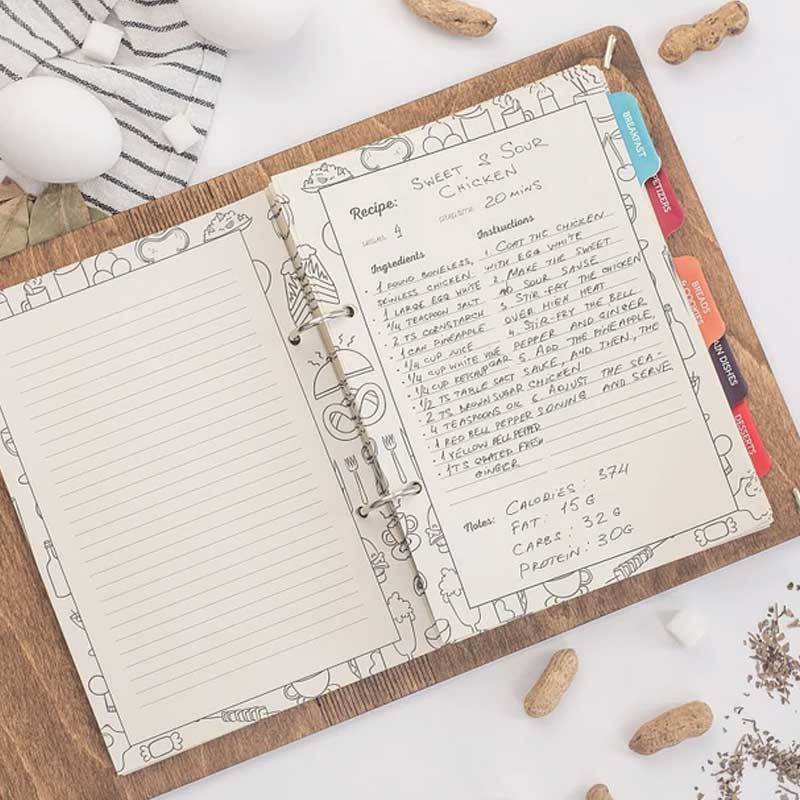 Recipe: SWEET & SOUR
CHICKEN
4
20 MINS
Ingredients
1 POUND BONELESS,
SKINLESS CHICKEN
1 LARGE EGG WHITE
1/4 TEASPOON SALT
2 TS CORNSTARCH
1 CAN PINEAPPLE
1/4 CUP JUICE
1/4 CUP WHITE VINE
1/4 CUP KETCHUP
1/2 TS TABLE SALT
2 TS BROWN SUGAR
4 TEASPOONS OIL
1 RED BELL PEPPER
1 YELLOW BELL PEPPER
1 TS GRATED FRESH
GINGER
Instructions
1 COAT THE CHICKEN
WITH EGG WHITE
2 MAKE THE SWEET
SOUR SAUSE
3 STIR-FRY THE CHICKEN
OVER HIGH HEAT
4 STIR-FRY THE BELL
PEPPER AND GINGER
5 ADD THE PINEAPPLE,
SAUCE, AND THEN, THE
CHICKEN
6 ADJUST THE SEA-
SONING AND SERVE,
Notes: CALORIES: 374
FAT: 15 G
CARBS: 32 G
PROTEIN: 30G
BREAKFAST
PETIZERS
BREADS
& COOKIES
IN DISHES
DESSERTS